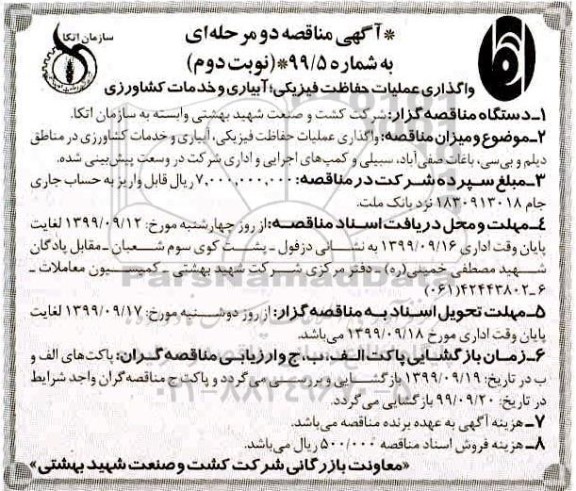 *آگهی مناقصه دو مرحله‌ای
به شماره ۹۹/۵*(نوبت دوم)
سازمان اتکا
واگذاری عملیات حفاظت فیزیکی؛ آبیاری و خدمات کشاورزی
۱ـ دستگاه مناقصه گزار: شرکت کشت و صنعت شهید بهشتی وابسته به سازمان اتکا.
۲ـ موضوع و میزان مناقصه: واگذاری عملیات حفاظت فیزیکی، آبیاری و خدمات کشاورزی در مناطق
دیلم و بی‌سی، باغات صفی‌آباد، سبیلی و کمپ‌های اجرایی و اداری شرکت در وسعت پیش‌بینی شده.
۳ـ مبلغ سپرده شرکت در مناقصه: ۷,۰۰۰,۰۰۰,۰۰۰ ریال قابل واریز به حساب جاری
جام ۱۸۳۰۹۱۳۰۱۸ نزد بانک ملت.
۴ـ مهلت و محل دریافت اسناد مناقصه: از روز چهارشنبه مورخ: ۱۳۹۹/۰۹/۱۲ لغایت
پایان وقت اداری ۱۳۹۹/۰۹/۱۶ به نشانی دزفول ـ پشت کوی سوم شعبان ـ مقابل پادگان
شهید مصطفی خمینی(ره) ـ دفتر مرکزی شرکت شهید بهشتی ـ کمیسیون معاملات ـ
۶ـ۴۲۴۴۳۸۰۲(۰۶۱)
۵ـ مهلت تحویل اسناد به مناقصه گزار: از روز دوشنبه مورخ: ۱۳۹۹/۰۹/۱۷ لغایت
پایان وقت اداری مورخ ۱۳۹۹/۰۹/۱۸ می‌باشد.
۶ـ زمان بازگشایی پاکت الف، ب، ج و ارزیابی مناقصه گران: پاکت‌های الف و
ب در تاریخ: ۱۳۹۹/۰۹/۱۹ بازگشایی و بررسی می گردد و پاکت ج مناقصه گران واجد شرایط
در تاریخ: ۹۹/۰۹/۲۰ بازگشایی می‌گردد.
۷ـ هزینه آگهی به عهده برنده مناقصه می‌باشد.
۸ـ هزینه فروش اسناد مناقصه ۵۰۰/۰۰۰ ریال می‌باشد.
«معاونت بازرگانی شرکت کشت و صنعت شهید بهشتی»